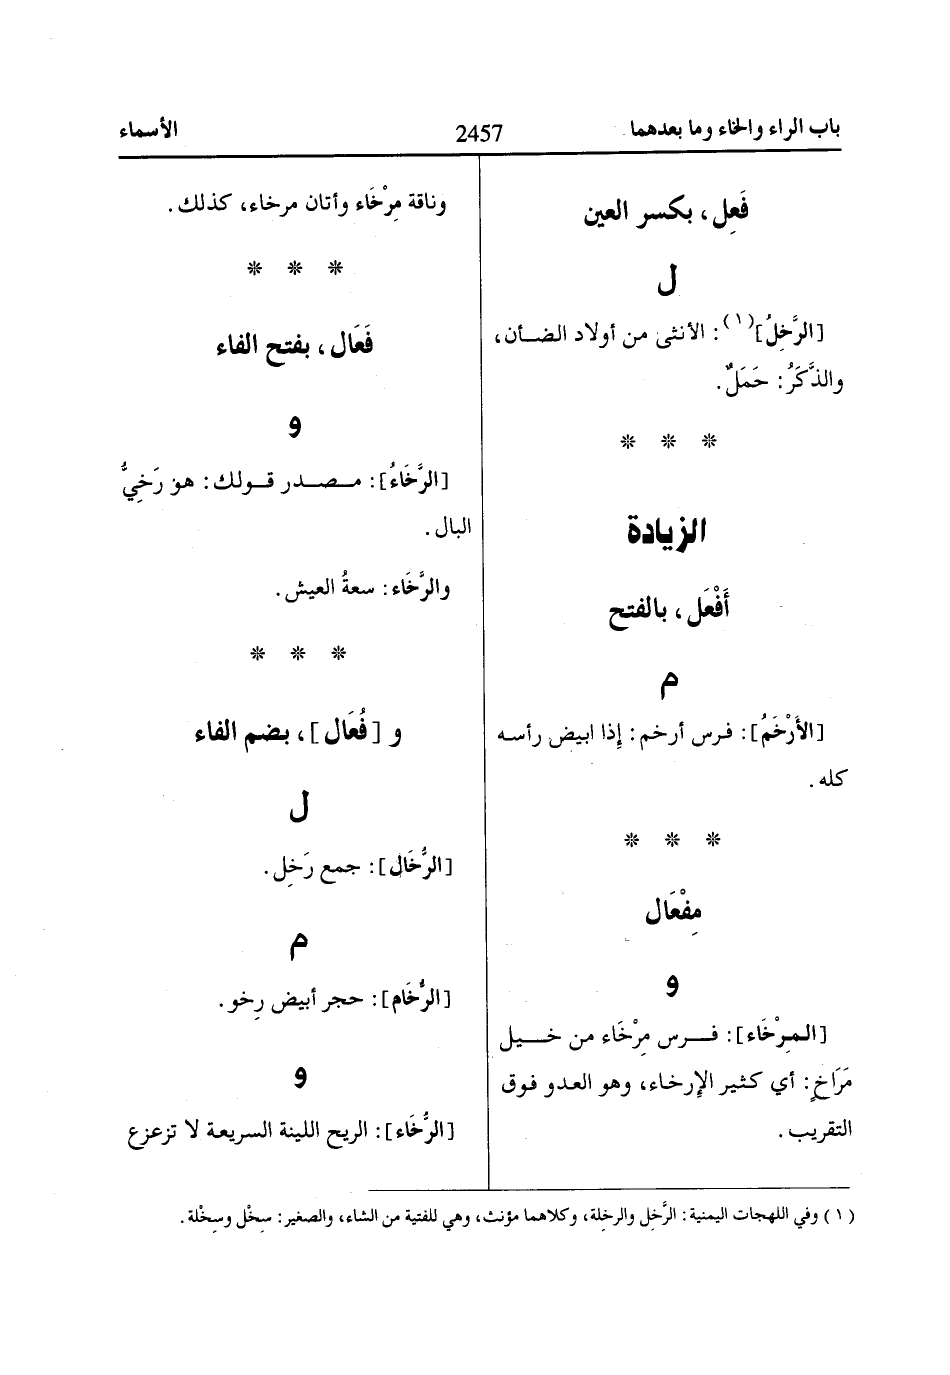 باب الراء والخاء وما بعدهما
2457
الأسماء
فَعِل، بكسر العين
ل
[الرَّخِلُ](١): الأنثى من أولاد الضـأن،
والذَّكَرُ: حَمَلٌ.
* * *
الزيادة
أَفْعَل، بالفتح
م
[الأَرْخَمُ]: فرس أرخم: إِذا ابيض رأسه
كله.
* * *
مِفْعَال
و
[المِرْخَاء]: فـرس مِرْخَاء من خـيل
مَرَاخٍ: أي كثير الإِرخاء، وهو العدو فوق
التقريب.
وناقة مِرْخَاء وأتان مرخاء، كذلك.
* * *
فَعَال، بفتح الفاء
و
[الرَّخَاءُ]: مـصـدر قـولك: هو رَخِيُّ
البال.
والرَّخَاء: سعةُ العيش.
* * *
و [فُعَال]، بضم الفاء
ل
[الرُّخَال]: جمع رَخِل.
م
[الرُّخَام]: حجر أبيض رِخو.
و
[الرُّخَاء]: الريح اللينة السريعة لا تزعزع
(١) وفي اللهجات اليمنية: الرَّخِل والرخِلة، وكلاهما مؤنث، وهي للفتية من الشاء، والصغير: سِخْل وسِخْلة.